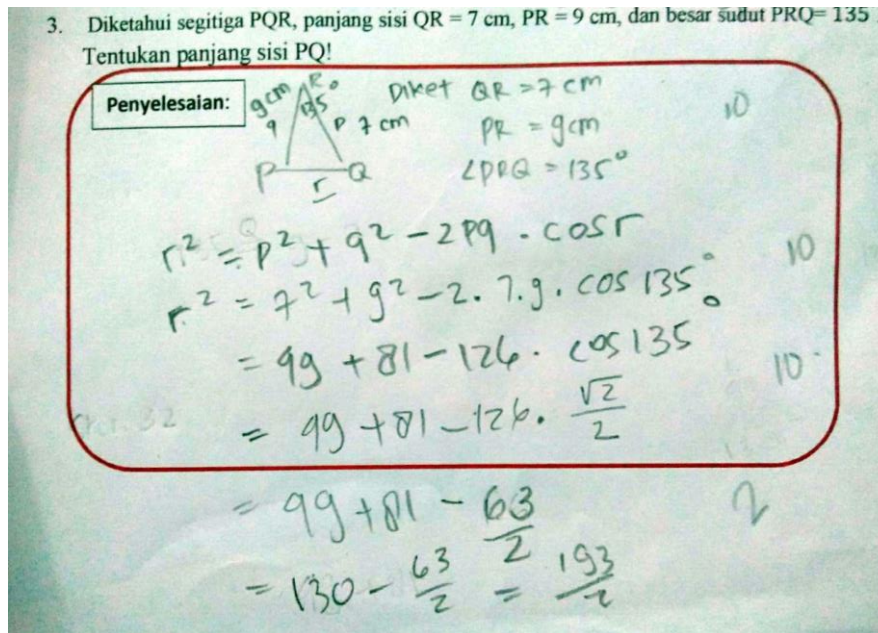 3. Diketahui segitiga PQR, panjang sisi QR = 7 cm, PR = 9 cm, dan besar sudut PRQ= 135
Tentukan panjang sisi PQ!
Penyelesaian:
9cm R 135° Diket QR = 7 cm 10
q p 7 cm PR = 9cm
P r Q ∠PRQ = 135°
r² = p² + q² - 2pq . cos r
r² = 7² + 9² - 2. 7.9. cos 135° 10
= 49 + 81 - 126. cos 135°
= 49 + 81 - 126. √2/2 10
= 49 + 81 - 63/2 2
= 130 - 63/2 = 193/2